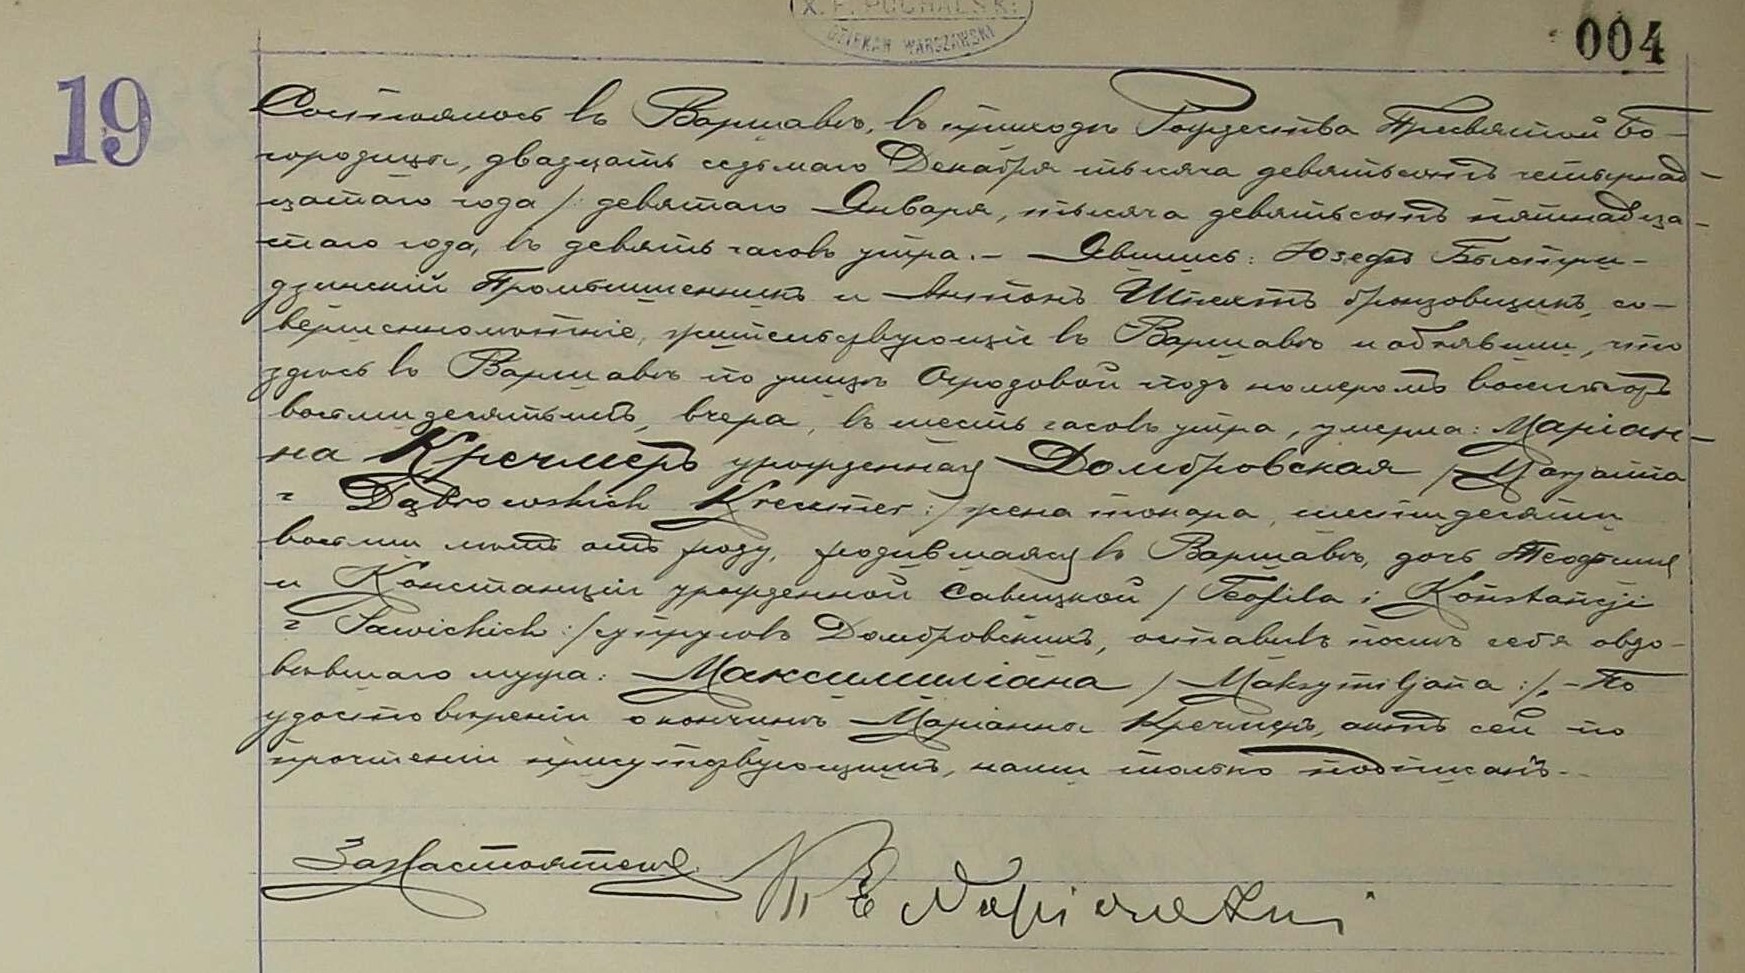 X. F. PUCHALSKI
DZIEKAN WARSZAWSKI
004
19
Состоялось въ Варшавѣ, въ приходѣ Рождества Пресвятой Бо-
городицы, двадцать седьмаго Декабря тысяча девятьсотъ четырнад-
цатаго года /: девятаго Января, тысяча девятьсотъ пятнадца-
таго года, въ девять часовъ утра. – Явились: Юзефъ Быстри-
дзинскій Промышленникъ и Антонъ бронзовщикъ, со-
вершеннолѣтніе, жительствующіе въ Варшавѣ и объявили, что
здѣсь въ Варшавѣ по улицѣ Огродовой подъ номеромъ
восмидесятымъ, вчера, въ шесть часовъ утра, умерла: Маріан-
на Кречмеръ урожденная Домбровская /: Marjanna
z Dąbrowskich Krecmer :/ жена токаря, шестидесяти
восьми лѣтъ отъ роду, родившаяся въ Варшавѣ, дочь Теофиля
и Констанціи урожденной Савицкой /: Teofila i Konstancji
z Sawickich :/ супруговъ Домбровскихъ, оставивъ послѣ себя овдо-
вѣвшаго мужа: Максимиліана /: Maksymiljana :/. – По
удостовѣреніи о кончинѣ Маріанны Кречмеръ, актъ сей по
прочтеніи присутствующимъ, нами только подписанъ. –
За Настоятеля